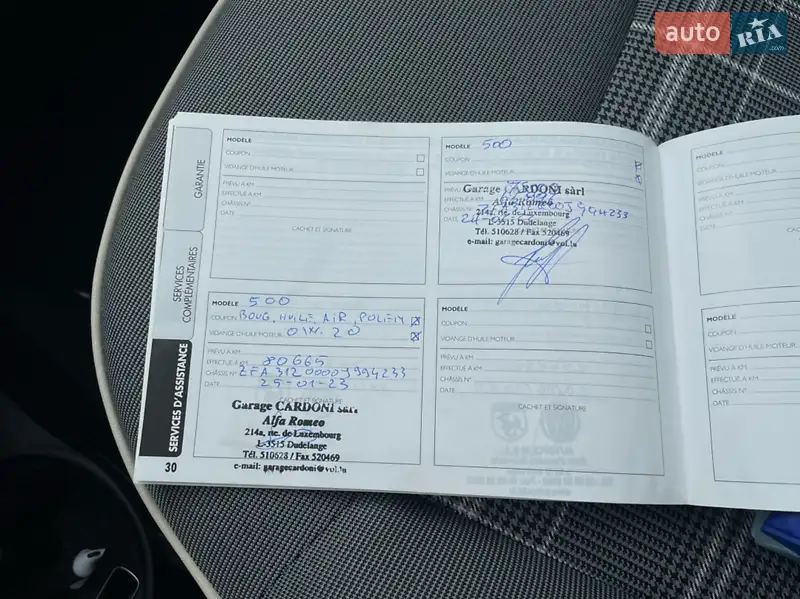 auto RIA.com
GARANTIE
SERVICES COMPLÉMENTAIRES
SERVICES D'ASSISTANCE
30
MODÈLE
COUPON
VIDANGE D'HUILE MOTEUR
PRÉVU A KM
EFFECTUÉ A KM
CHÂSSIS N°
DATE
CACHET ET SIGNATURE
MODÈLE 500
COUPON
VIDANGE D'HUILE MOTEUR
PRÉVU A KM
EFFECTUÉ A KM
CHÂSSIS N°
DATE
Garage CARDONI sàrl
Alfa Romeo
214a, rte. de Luxembourg
L-3515 Dudelange
Tél. 510628 / Fax 520469
e-mail: garagecardoni@vol.lu
MODÈLE
COUPON
VIDANGE D'HUILE MOTEUR
PRÉVU A KM
EFFECTUÉ A KM
CHÂSSIS N°
DATE
MODÈLE 500
COUPON BOUG, HUILE, AIR, POLLEN
VIDANGE D'HUILE MOTEUR 0W.20
PRÉVU A KM
EFFECTUÉ A KM 80665
CHÂSSIS N° ZFA3120000J994233
DATE 25-01-23
CACHET ET SIGNATURE
Garage CARDONI sàrl
Alfa Romeo
214a, rte. de Luxembourg
L-3515 Dudelange
Tél. 510628 / Fax 520469
e-mail: garagecardoni@vol.lu
MODÈLE
COUPON
VIDANGE D'HUILE MOTEUR
PRÉVU A KM
EFFECTUÉ A KM
CHÂSSIS N°
DATE
CACHET ET SIGNATURE
MODÈLE
COUPON
VIDANGE D'HUILE MOTEUR
PRÉVU A KM
EFFECTUÉ A KM
CHÂSSIS N°
DATE